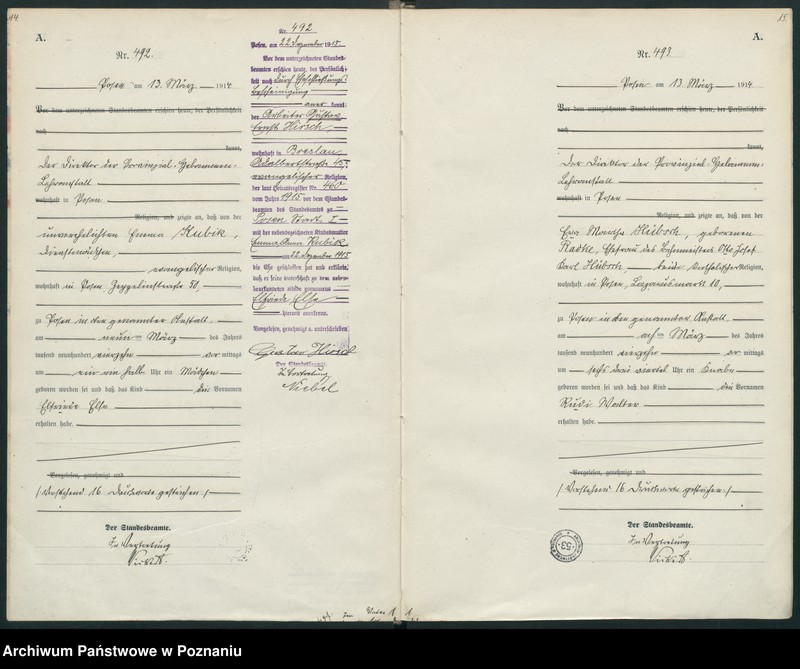 14.
A.
Nr. 492.
Posen am 13. März 1914
Vor dem unterzeichneten Standesbeamten erschien heute, der Persönlichkeit
nach
kannt,
Der Direktor der Provinzial-Hebammen-
Lehranstalt
wohnhaft in Posen.
Religion, und zeigte an, daß von der
unverehelichten Emma Kubik,
Dienstmädchen,
evangelischer Religion,
wohnhaft in Posen, Zeppelinstraße
zu Posen in der genannten Anstalt
am neun März des Jahres
tausend neunhundert vierzehn vor mittags
um ein ein halb Uhr ein Mädchen
geboren worden sei und daß das Kind die Vornamen
Elfriede Else
erhalten habe.
Vorgelesen, genehmigt und
/Vorstehend 16 Druckworte gestrichen/
Der Standesbeamte.
In Vertretung
Nr. 492
Posen, am 22. Dezember 1915.
Vor dem unterzeichneten Standes-
beamten erschien heute, der Persönlich-
keit nach durch Eheschließungs-
bescheinigung
aner kannt,
der Arbeiter Gustav
Hirsch,
wohnhaft in Breslau
Adalbertstraße 45,
evangelischer Religion,
der laut Heiratsregister Nr. 460
vom Jahre 1915 vor dem Standes-
beamten des Standesamts zu
Posen Stadt I
mit der nebenbezeichneten Kindesmutter
Emma Kubik
22. Dezember 1915
die Ehe geschlossen hat und erklärte,
daß er seine Vaterschaft zu dem neben-
beurkundeten Kinde
Elfriede Else
hiermit anerkenne.
Vorgelesen, genehmigt u. unterschrieben
Gustav Hirsch
Der Standesbeamte.
In Vertretung
Niebel
15.
A.
Nr. 493
Posen am 13. März 1914
Vor dem unterzeichneten Standesbeamten erschien heute, der Persönlichkeit
nach
kannt,
Der Direktor der Provinzial-Hebammen-
Lehranstalt
wohnhaft in Posen.
Religion, und zeigte an, daß von der
Hübsch, geborenen
Radke, Ehefrau des Otto Josef
Karl Hübsch beide katholischer Religion,
wohnhaft in Posen, 10,
zu Posen in der genannten Anstalt
am acht März des Jahres
tausend neunhundert vierzehn vor mittags
um sechs drei viertel Uhr ein Knabe
geboren worden sei und daß das Kind die Vornamen
Rudi Walter
erhalten habe.
Vorgelesen, genehmigt und
/Vorstehend 16 Druckworte gestrichen/
Der Standesbeamte.
In Vertretung
53
Archiwum Państwowe w Poznaniu